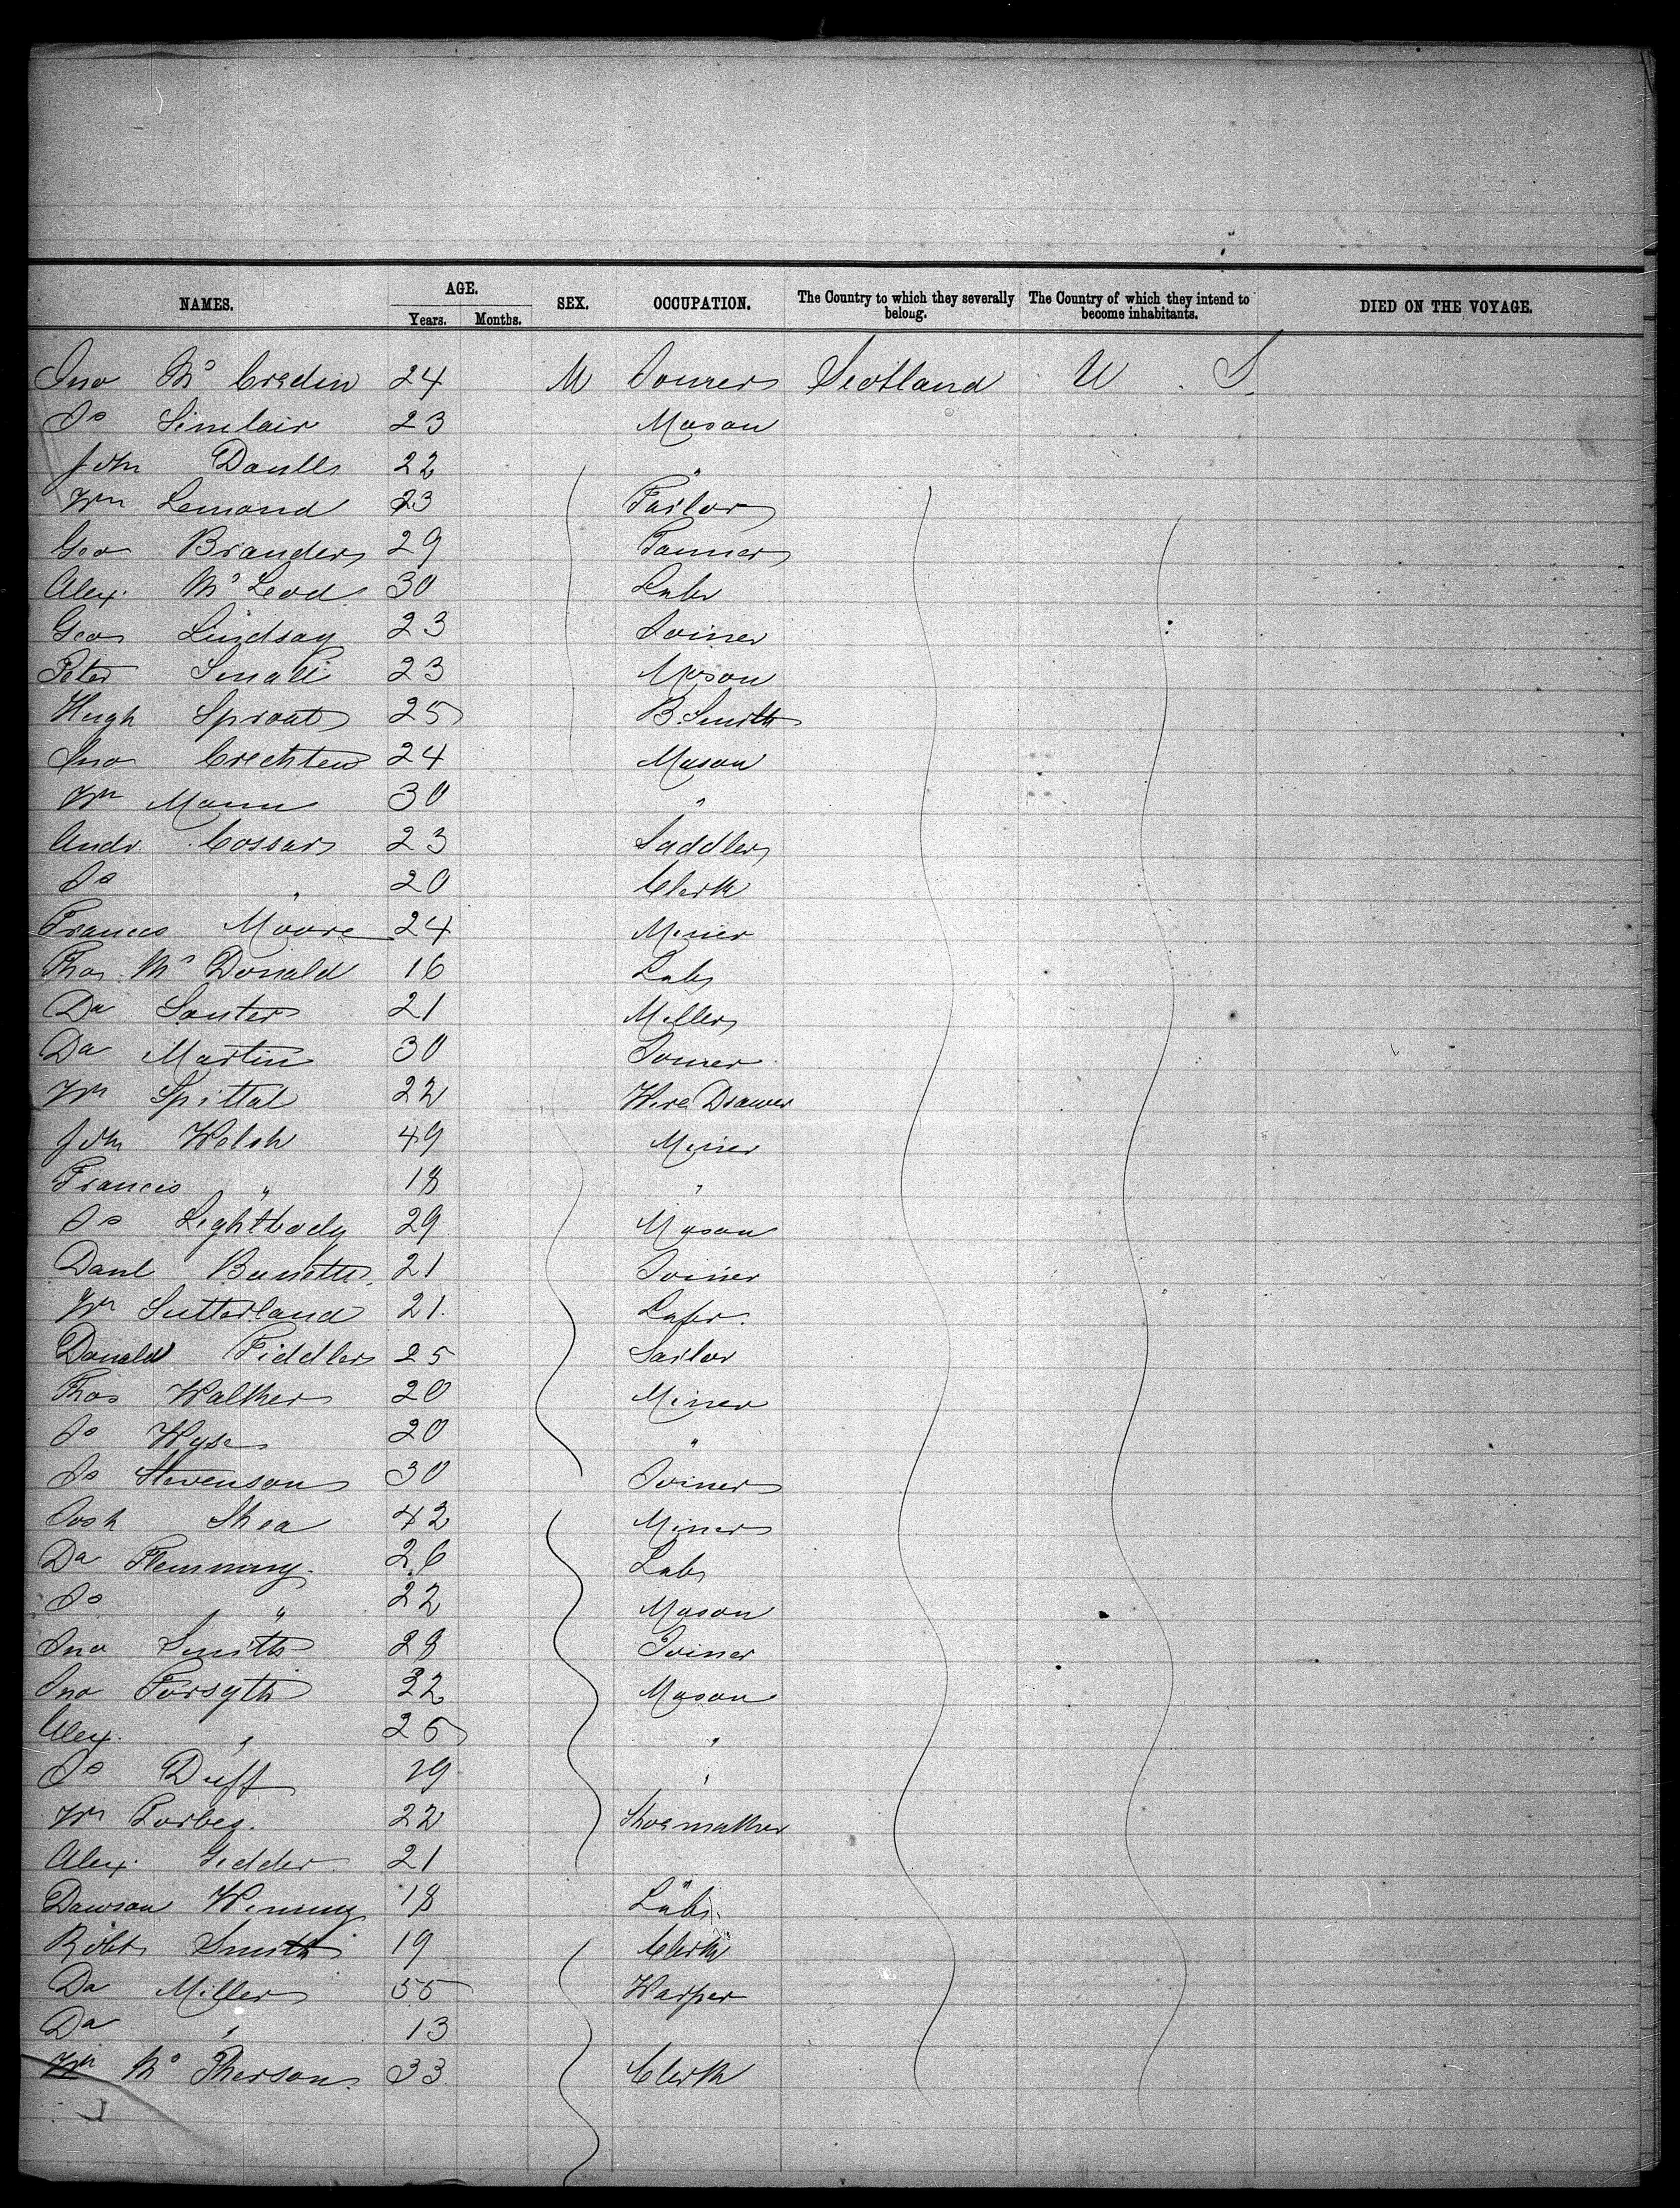 NAMES. AGE. SEX. OCCUPATION. The Country to which they severally belong. The Country of which they intend to become inhabitants. DIED ON THE VOYAGE.
Years. Months.
Jno Mc Credin 24 M Joiner Scotland U. S.
Js Sinclair 23 Mason
John 22 "
Wm Lemond 23 Tailor
Geo Brander 29 Tanner
Alex. Mc Leod 30 Labr
Geo Lindsay 23 Joiner
Peter Small 23 Mason
Hugh Sproat 25 B. Smith
Jno Crechten 24 Mason
Wm Mann 30 "
Andr Cossar 23 Saddler
Js " 20 Clerk
Francis Moore 24 Miner
Thos Mc Donald 16 Labr
Da Souter 21 Miller
Da Martin 30 Joiner
Wm Spittal 22 Wire Drawer
John Welsh 49 Miner
Francis " 18 "
Js Lightbody 29 Mason
Danl 21 Joiner
Wm Sutterland 21 Labr.
Donald Fiddler 25 Sailor
Thos Walker 20 Miner
Js Wyse 20 "
Js Stevenson 30 Joiner
Josh Shea 42 Miner
Da Flemming 26 Labr
Js " 22 Mason
Jno Smith 28 Joiner
Jno Forsyth 32 Mason
Alex. " 25 "
Js Duff 19 "
Wm Forbes. 22 Shoemaker
Alex. Gedder 21 "
Dawson 18 Labr.
Robt Smith 19 Clerk
Da Miller 55 Warper
Da " 13
Wm Mc Pherson 33 Clerk